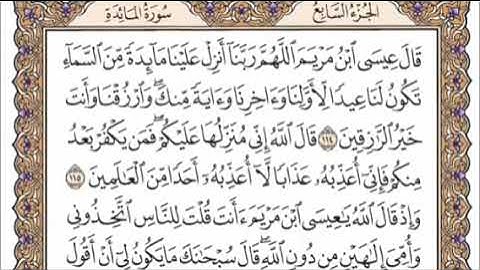 الجزء السابع
سورة المائدة
قَالَ عِيسَى ٱبْنُ مَرْيَمَ ٱللَّهُمَّ رَبَّنَآ أَنزِلْ عَلَيْنَا مَآئِدَةً مِّنَ ٱلسَّمَآءِ
تَكُونُ لَنَا عِيدًا لِّأَوَّلِنَا وَءَاخِرِنَا وَءَايَةً مِّنكَ ۖ وَٱرْزُقْنَا وَأَنتَ
خَيْرُ ٱلرَّٰزِقِينَ ١١٤ قَالَ ٱللَّهُ إِنِّى مُنَزِّلُهَا عَلَيْكُمْ ۖ فَمَن يَكْفُرْ بَعْدُ
مِنكُمْ فَإِنِّىٓ أُعَذِّبُهُۥ عَذَابًا لَّآ أُعَذِّبُهُۥٓ أَحَدًا مِّنَ ٱلْعَٰلَمِينَ ١١٥
وَإِذْ قَالَ ٱللَّهُ يَٰعِيسَى ٱبْنَ مَرْيَمَ ءَأَنتَ قُلْتَ لِلنَّاسِ ٱتَّخِذُونِى
وَأُمِّىَ إِلَٰهَيْنِ مِن دُونِ ٱللَّهِ ۖ قَالَ سُبْحَٰنَكَ مَا يَكُونُ لِىٓ أَنْ أَقُولَ